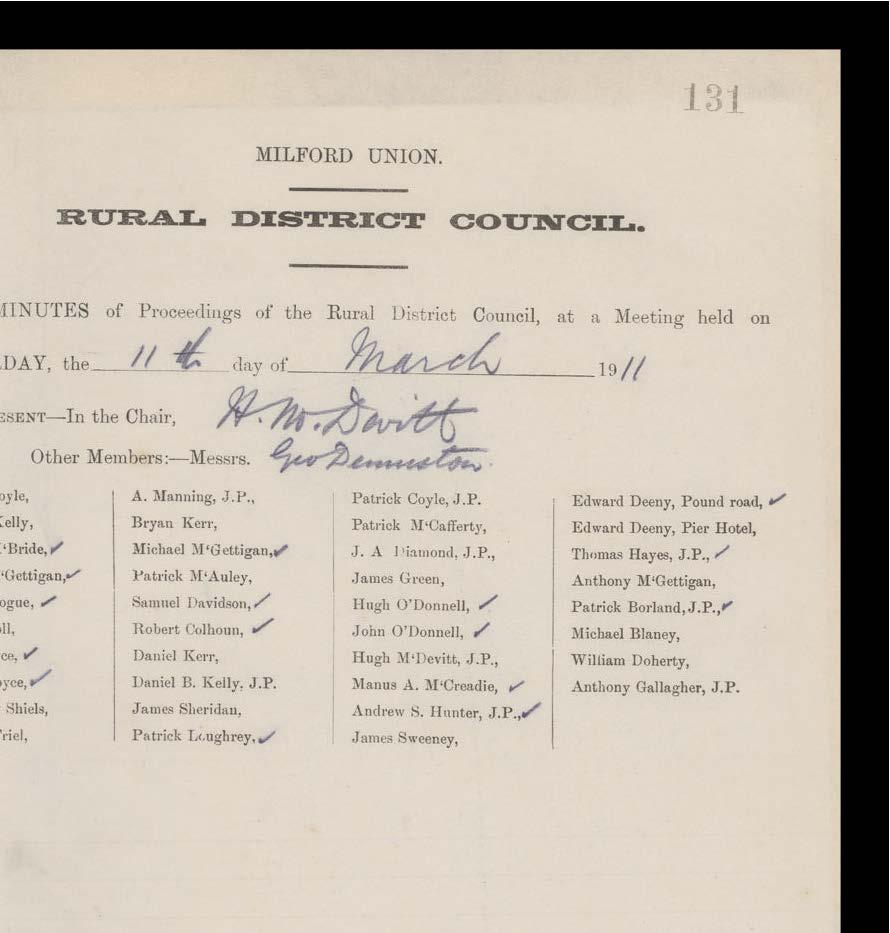 131
MILFORD UNION.
RURAL DISTRICT COUNCIL.
MINUTES of Proceedings of the Rural District Council, at a Meeting held on
DAY, the 11th day of March 1911
ESENT—In the Chair, H. McDevitt
Other Members:—Messrs. Geo Denniston.
oyle,
Kelly,
M‘Bride, ✓
‘Gettigan, ✓
ogue, ✓
ll,
ce, ✓
yce, ✓
Shiels,
riel,
A. Manning, J.P.,
Bryan Kerr,
Michael M‘Gettigan, ✓
Patrick M‘Auley,
Samuel Davidson, ✓
Robert Colhoun, ✓
Daniel Kerr,
Daniel B. Kelly, J.P.
James Sheridan,
Patrick Loughrey, ✓
Patrick Coyle, J.P.
Patrick M‘Cafferty,
J. A Diamond, J.P.,
James Green,
Hugh O’Donnell, ✓
John O’Donnell, ✓
Hugh M‘Devitt, J.P.,
Manus A. M‘Creadie, ✓
Andrew S. Hunter, J.P., ✓
James Sweeney,
Edward Deeny, Pound road, ✓
Edward Deeny, Pier Hotel,
Thomas Hayes, J.P., ✓
Anthony M‘Gettigan,
Patrick Borland, J.P., ✓
Michael Blaney,
William Doherty,
Anthony Gallagher, J.P.